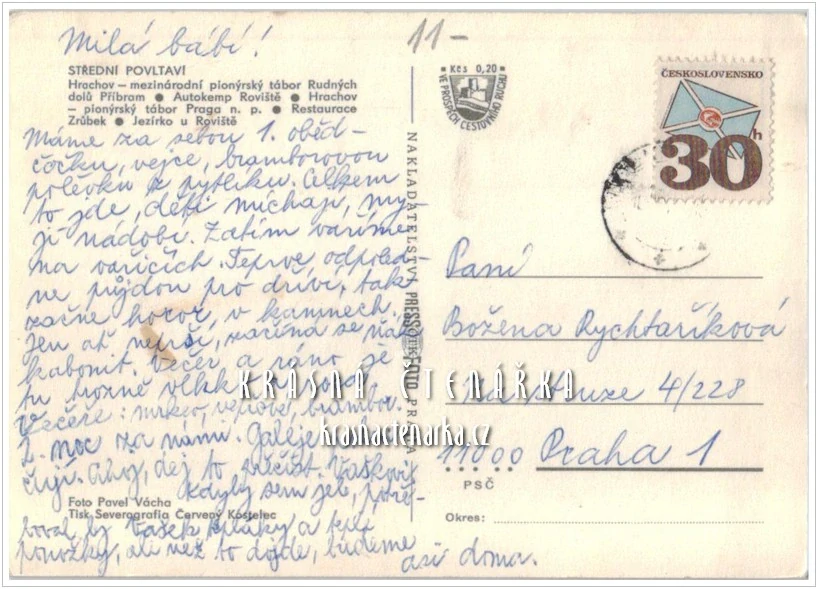 Milá bábi!
11-
STŘEDNÍ POVLTAVÍ
Hrachov – mezinárodní pionýrský tábor Rudných
dolů Příbram ● Autokemp Roviště ● Hrachov
– pionýrský tábor Praga n. p. ● Restaurace
Zrůbek ● Jezírko u Roviště
Máme za sebou 1. oběd –
čočku, vejce, bramborovou
polévku z pytlíku. Celkem
to jde, děti míchají, my-
jí nádobí. Zatím vaříme
na vařičích. Teprve odpoled-
ne půjdou pro dříví, tak
začne horor, v kamnech.
Jen ať neprší, začíná se
kabonit. Večer a ráno je
tu hrozně vlhko
Večeře: maso, vepřové, brambor.
2. noc za námi.
čují. Ahoj, dej to přečíst.
Kdyby sem jel, potře-
boval by Vašek tepláky a teplé
ponožky, ale než to dojde, budeme
asi doma.
Foto Pavel Vácha
Tisk Severografia Červený Kostelec
NAKLADATELSTVÍ PRESSFOTO PRAHA
Kčs 0,20
VE PROSPĚCH CESTOVNÍHO RUCHU
ČESKOSLOVENSKO
30h
Paní
Božena Rychtaříková
Na 4/228
11000 Praha 1
PSČ
Okres:
KRÁSNÁ ČTENÁŘKA
krasnactenarka.cz